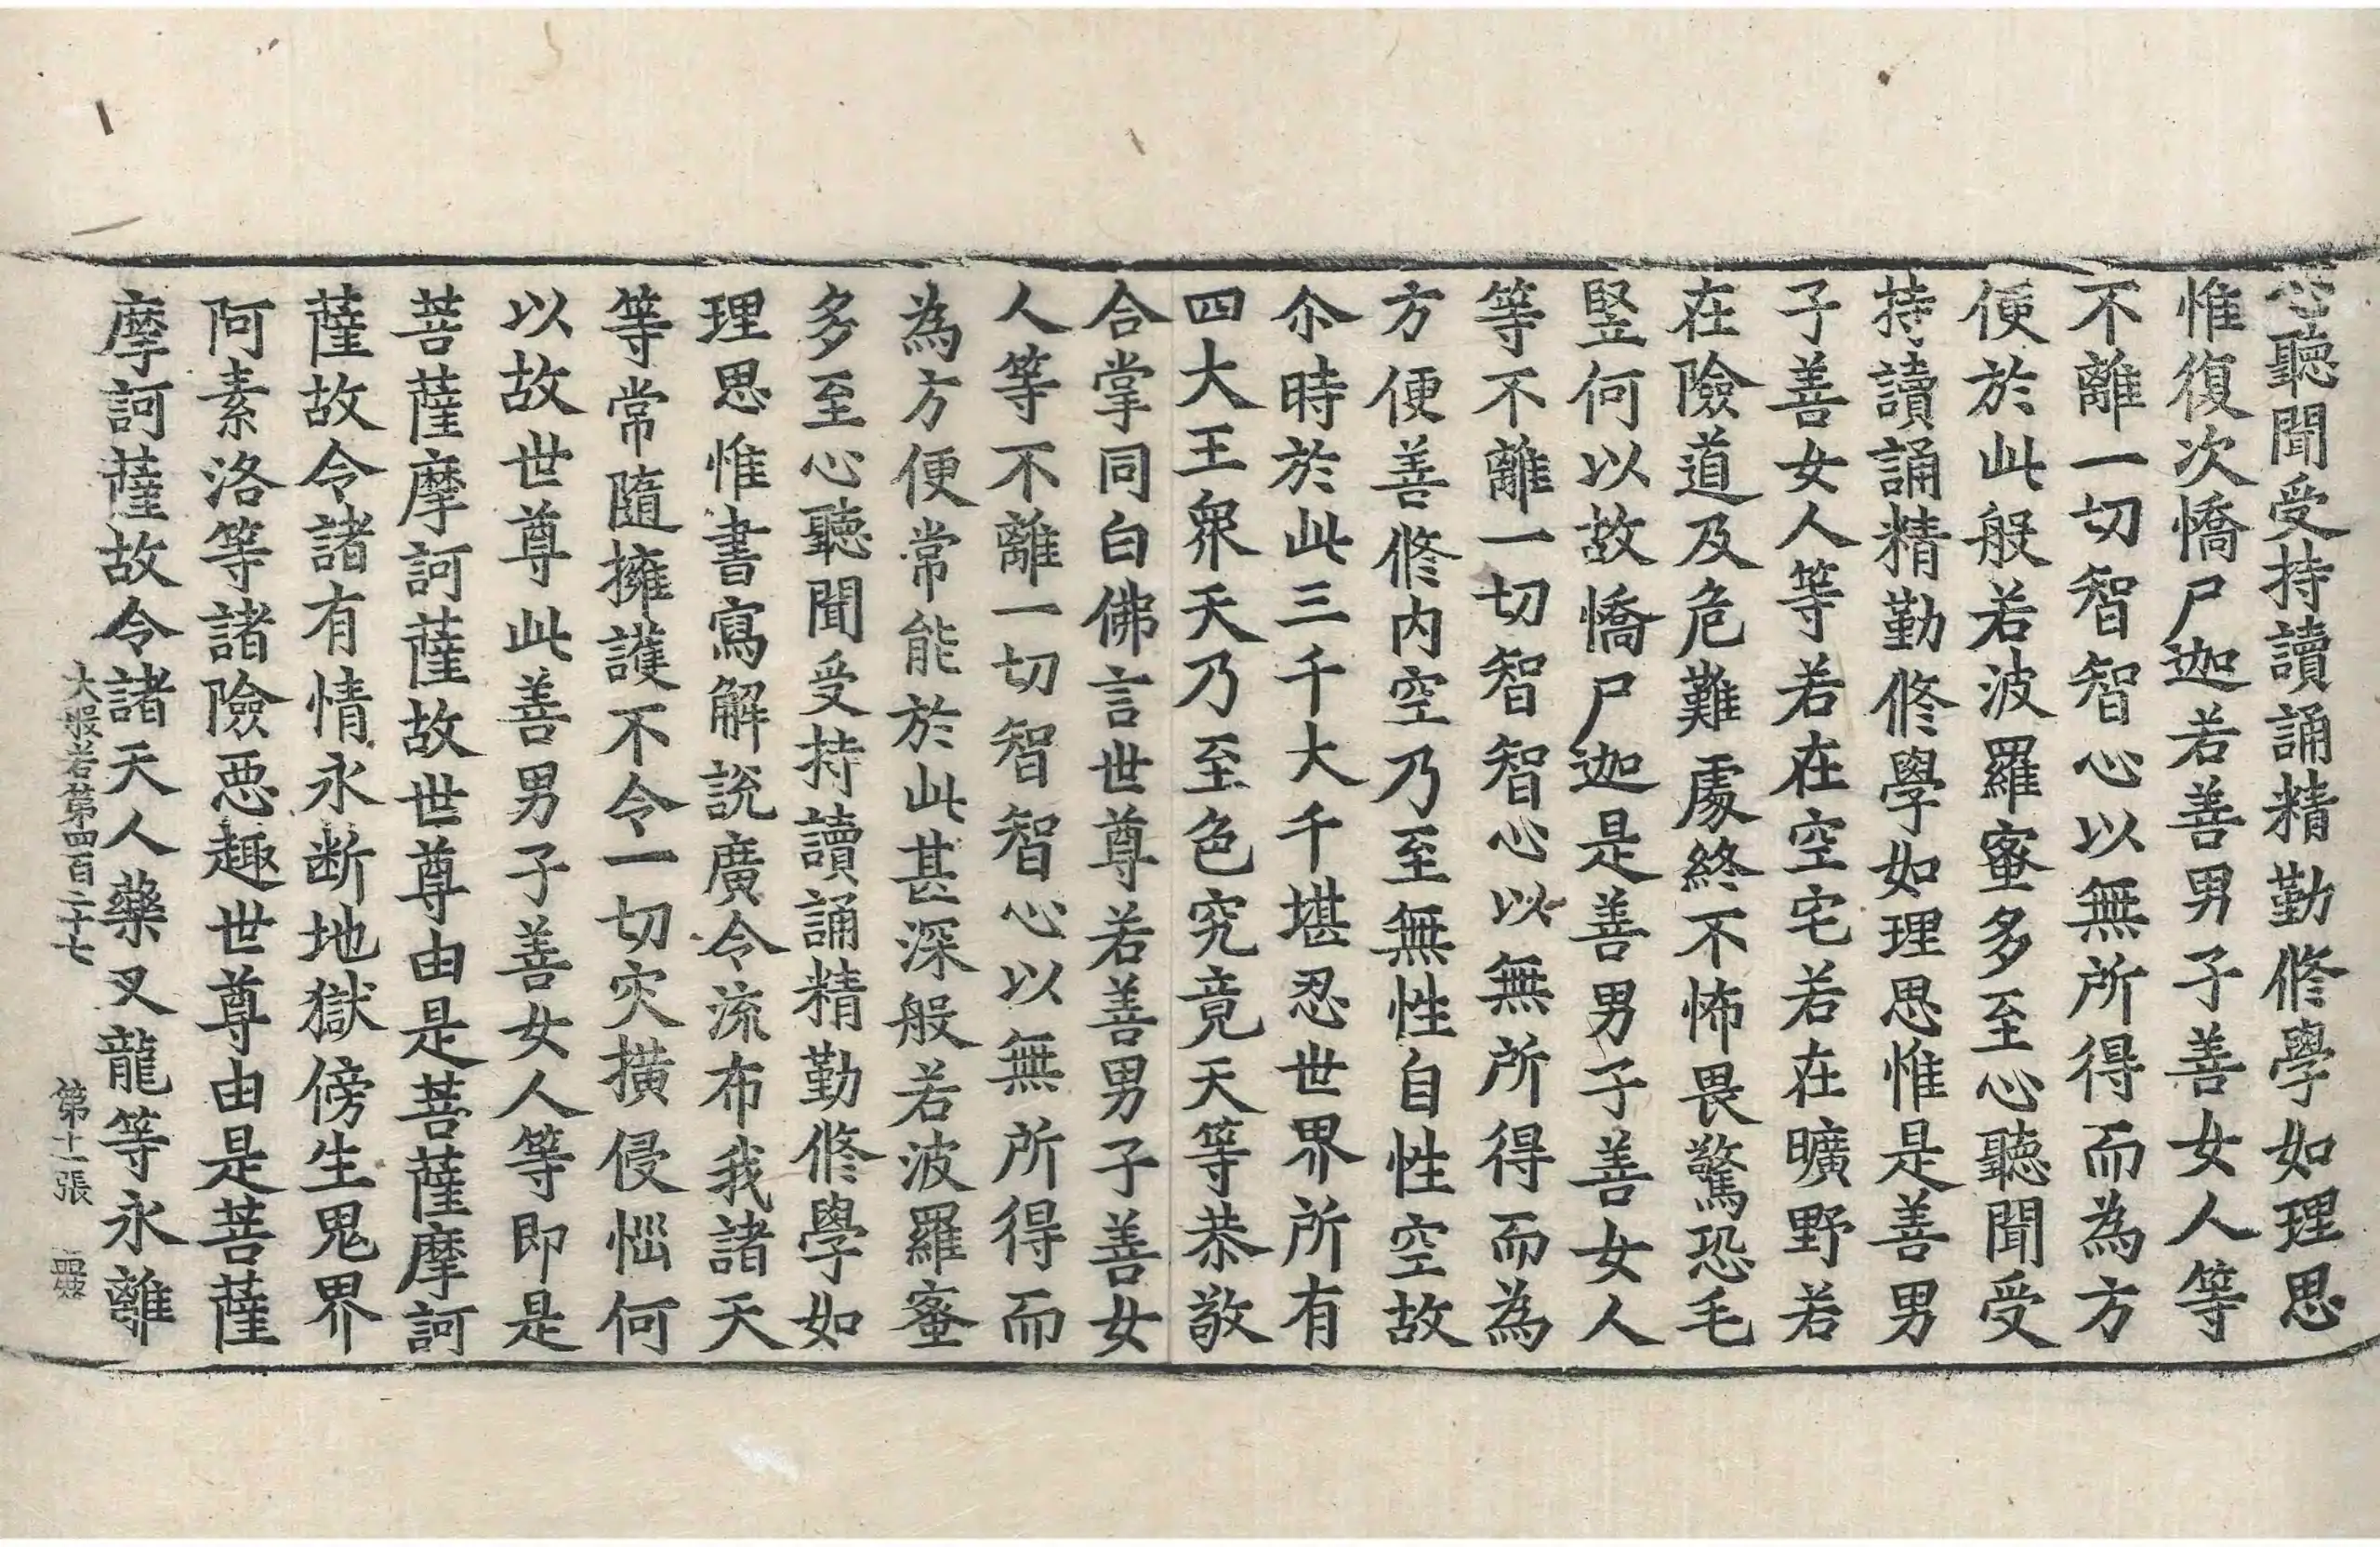 心聽聞受持讀誦精勤修學如理思
惟復次憍尸迦若善男子善女人等
不離一切智智心以無所得而為方
便於此般若波羅蜜多至心聽聞受
持讀誦精勤修學如理思惟是善男
子善女人等若在空宅若在曠野若
在險道及危難處終不怖畏驚恐毛
竪何以故憍尸迦是善男子善女人
等不離一切智智心以無所得而為
方便善修內空乃至無性自性空故
尒時於此三千大千堪忍世界所有
四大王衆天乃至色究竟天等恭敬
合掌同白佛言世尊若善男子善女
人等不離一切智智心以無所得而
為方便常能於此甚深般若波羅蜜
多至心聽聞受持讀誦精勤修學如
理思惟書寫解說廣令流布我諸天
等常隨擁護不令一切灾橫侵惱何
以故世尊此善男子善女人等即是
菩薩摩訶薩故世尊由是菩薩摩訶
薩故令諸有情永断地獄傍生鬼界
阿素洛等諸險惡趣世尊由是菩薩
摩訶薩故令諸天人藥叉龍等永離
大般若第四百二十七 第十一張